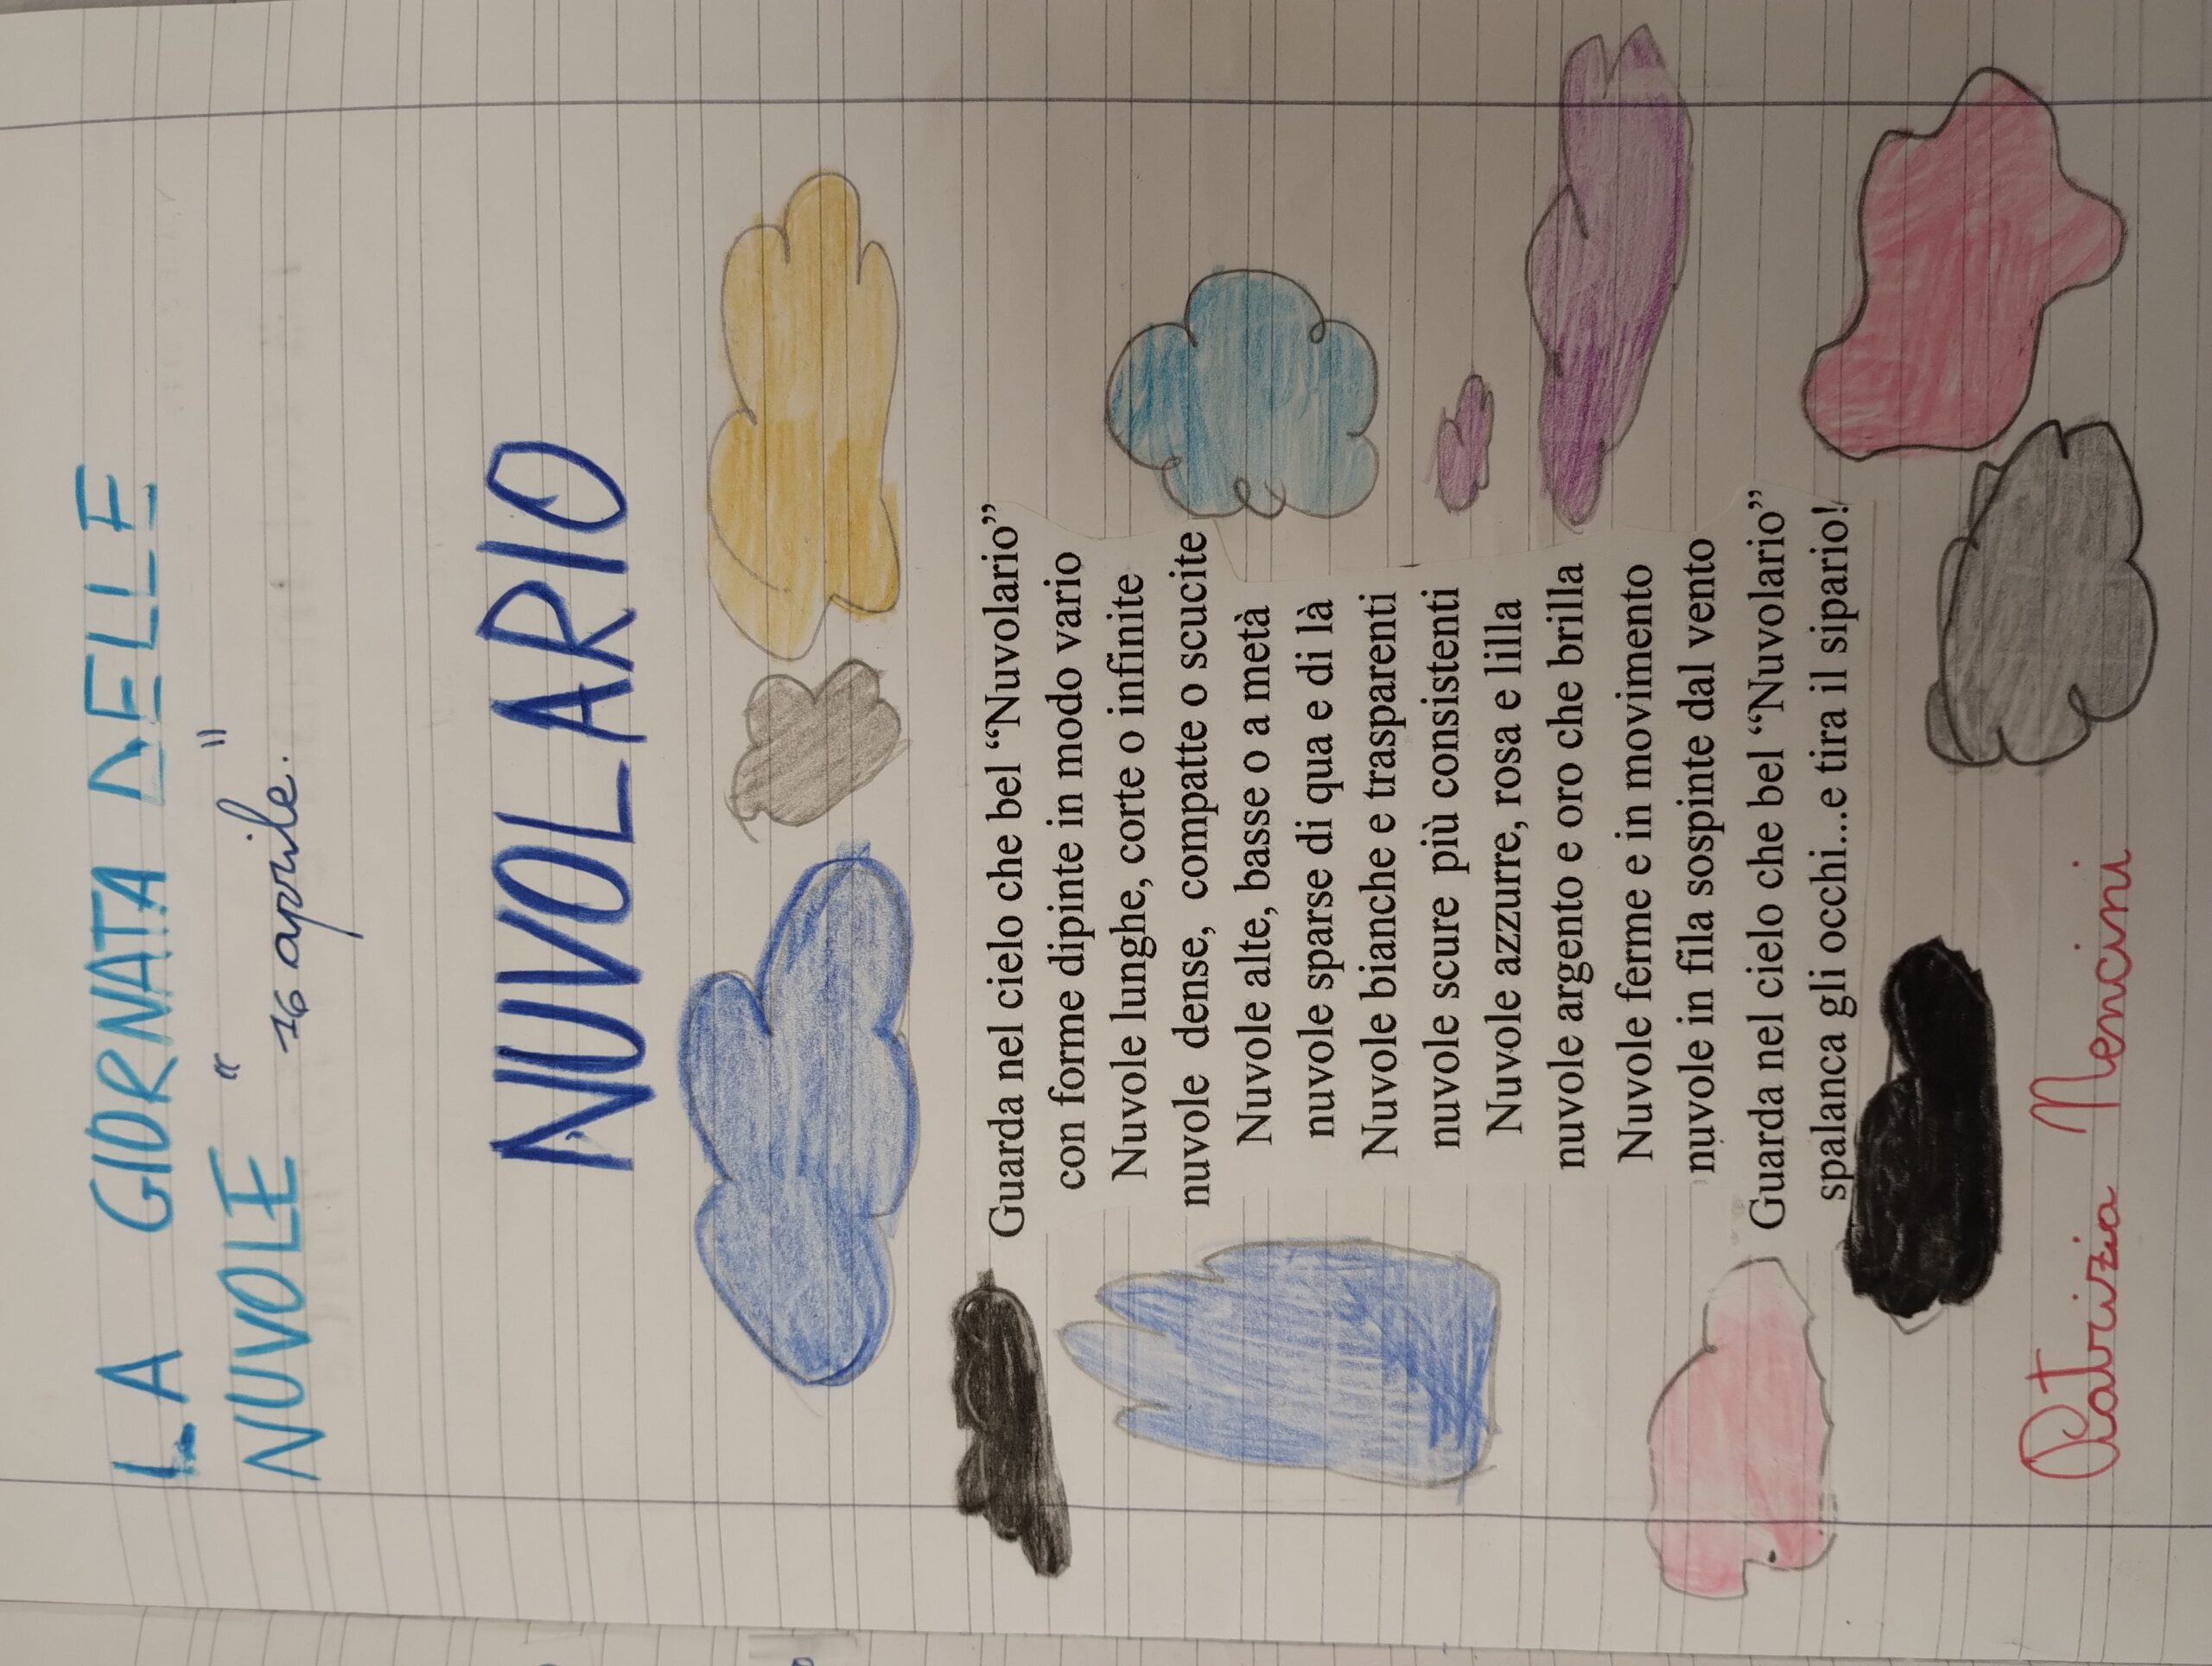 LA GIORNATA DELLE
NUVOLE " "
16 aprile.
NUVOLARIO
Guarda nel cielo che bel “Nuvolario”
con forme dipinte in modo vario
Nuvole lunghe, corte o infinite
nuvole dense, compatte o scucite
Nuvole alte, basse o a metà
nuvole sparse di qua e di là
Nuvole bianche e trasparenti
nuvole scure più consistenti
Nuvole azzurre, rosa e lilla
nuvole argento e oro che brilla
Nuvole ferme e in movimento
nuvole in fila sospinte dal vento
Guarda nel cielo che bel “Nuvolario”
spalanca gli occhi...e tira il sipario!
Patrizia Mencini